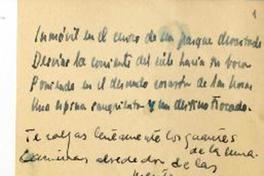 Inmóvil en el cruce de un parque desnudo
Desvías la corriente del cielo hacia tu boca
Poniendo en el desnudo corazón de las horas
Una espina sangrienta y un destino trocado.
Te calzas lentamente los guantes
de la luna.
Caminas alrededor de las